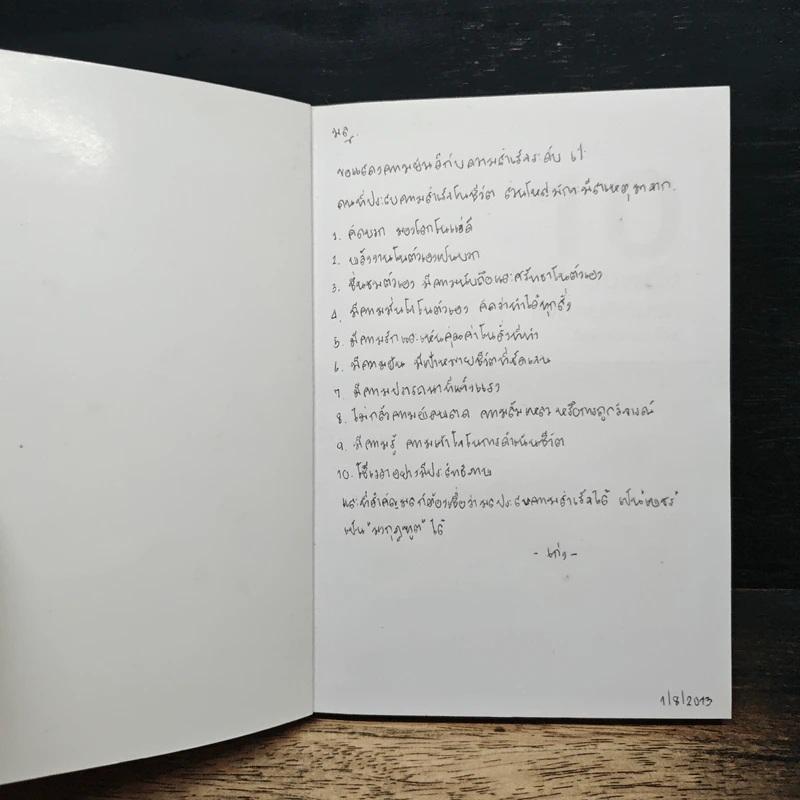 ขอแสดงความยินดีกับความสำเร็จระดับ
คนที่ประสบความสำเร็จในชีวิต ส่วนใหญ่มักจะมีสาเหตุมาจาก.
1. คิดบวก มองโลกในแง่ดี
2. พลังงานในตัวเองเป็นบวก
3. ชื่นชมตัวเอง มีความนับถือและศรัทธาในตัวเอง
4. มีความมั่นใจในตัวเอง คิดว่าทำได้ทุกสิ่ง
5. มีความรักและเห็นคุณค่าในสิ่งที่ทำ
6. มีความฝัน มีเป้าหมายชีวิตที่ชัดเจน
7. มีความปรารถนาที่แรงกล้า
8. ไม่กลัวความผิดพลาด ความล้มเหลว หรือการถูกวิจารณ์
9. มีความรู้ ความเข้าใจในการดำเนินชีวิต
10. ใช้เวลาอย่างมีประสิทธิภาพ
และที่สำคัญ ต้องเชื่อว่า ประสบความสำเร็จได้
เป็น ได้
- เก๋ง -
1/8/2013